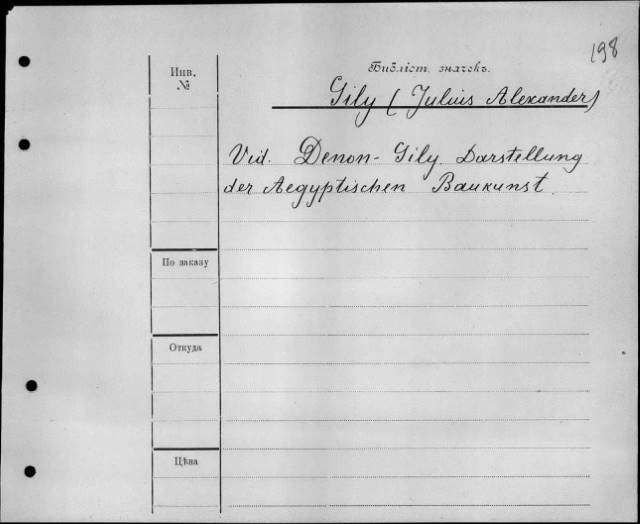 198
Библіот. значекъ.
Инв.
№
Gily (Julius Alexander)
Vid. Denon-Gily. Darstellung
der Aegyptischen Baukunst.
По заказу
Откуда
Цѣна